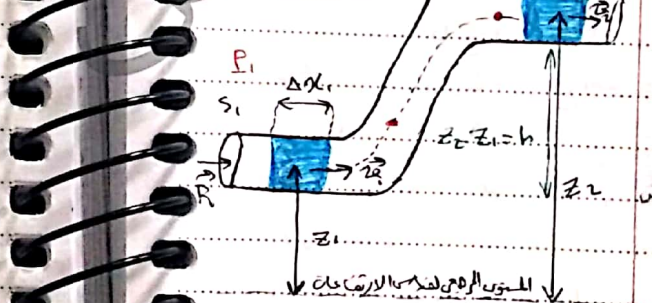 P₁
Δx₁
S₁
v₂
z₂ z₁ = h
v₁
F₁
z₂
z₁
المستوى المرجعي لقياس الارتفاعات